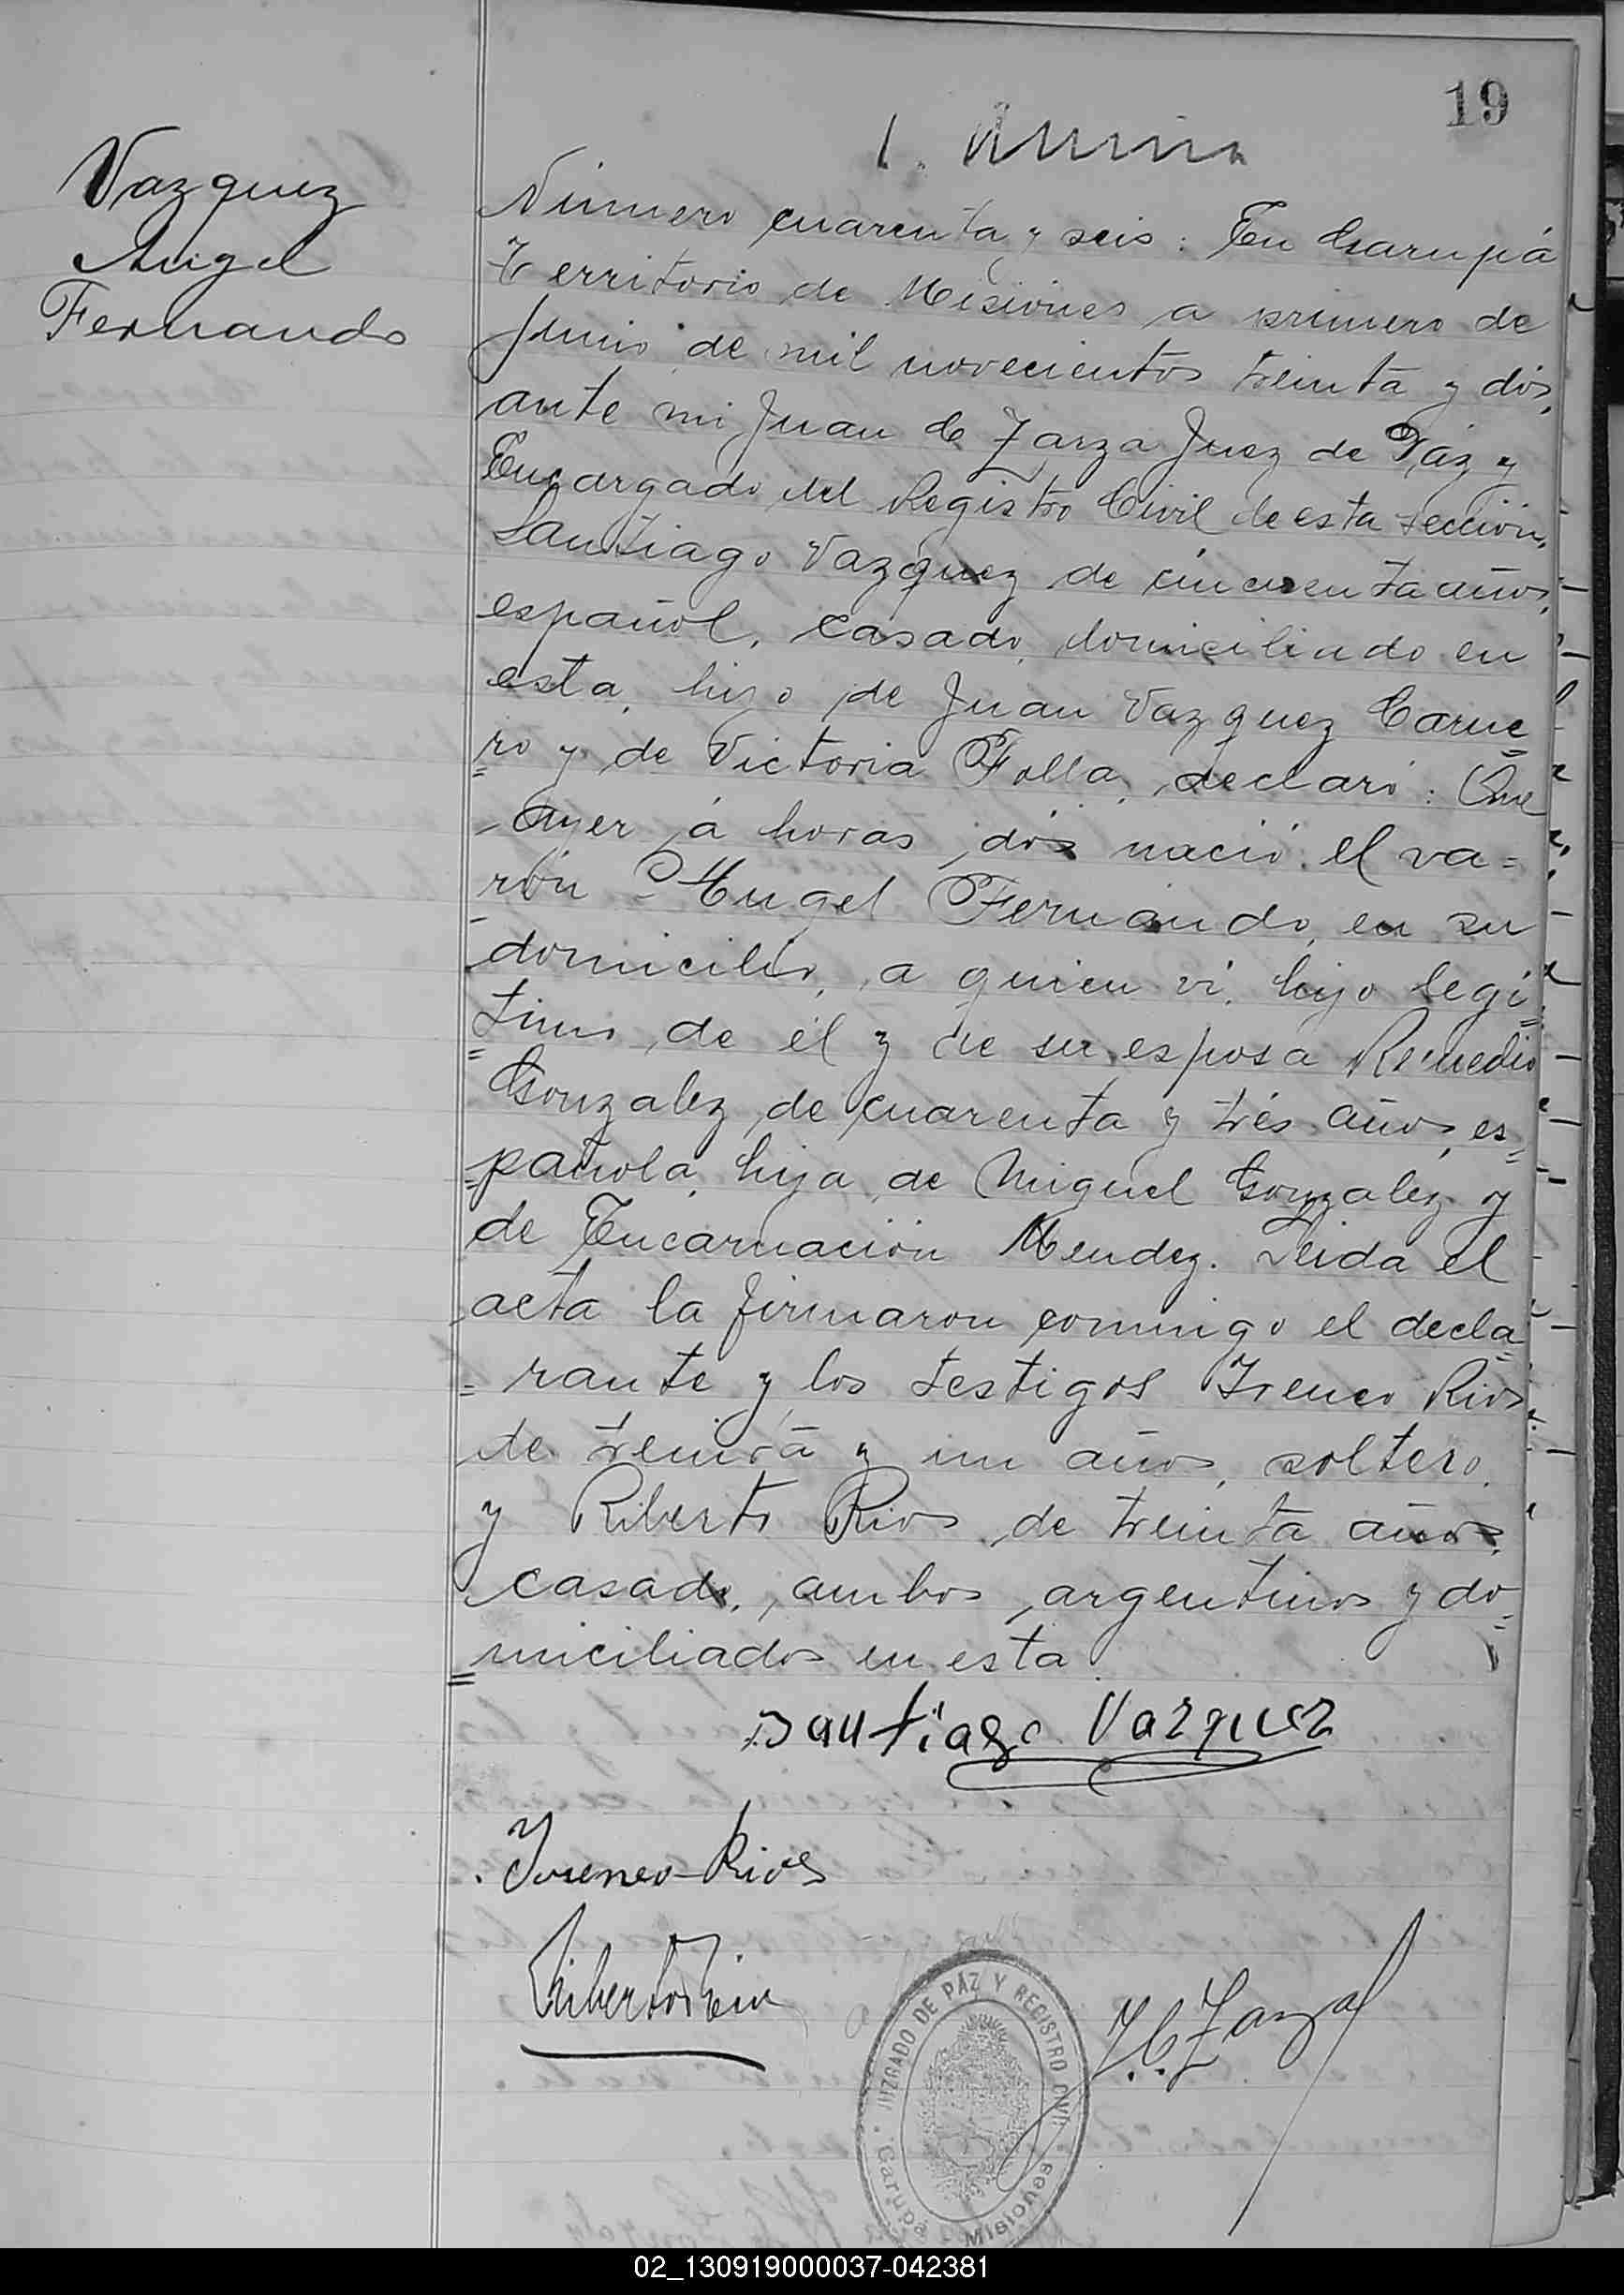 19
Vazquez
Angel
Fernando
Número cuarenta y seis: En Garupá
Territorio de Misiones a primero de
Junio de mil novecientos treinta y dós,
ante mi Juan C Zarza Juez de Páz y
Encargado del Registro Civil de esta sección,
Santiago Vazquez de cincuenta años,
español, casado, domiciliado en
esta, hijo de Juan Vazquez Carne=
=ro y de Victoria Folla, declaró: Que
ayer á horas dós nació el va=
rón Angel Fernando, en su
domicilio, a quien ví, hijo legi=
=timo de él y de su esposa Remedio
Gonzalez de cuarenta y trés años, es=
=pañola, hija de Miguel Gonzalez y
de Encarnación Mendez. Leida el
acta la firmaron conmigo el decla=
=rante y los testigos Ireneo Rios
de treinta y un años, soltero,
y Riberto Rios de treinta años,
casado, ambos argentinos y do=
=miciliados en esta.
Santiago Vazquez
Yreneo Rios
J.C. Zarza
JUZGADO DE PAZ Y REGISTRO CIVIL
Garupá - Misiones
02_130919000037-042381